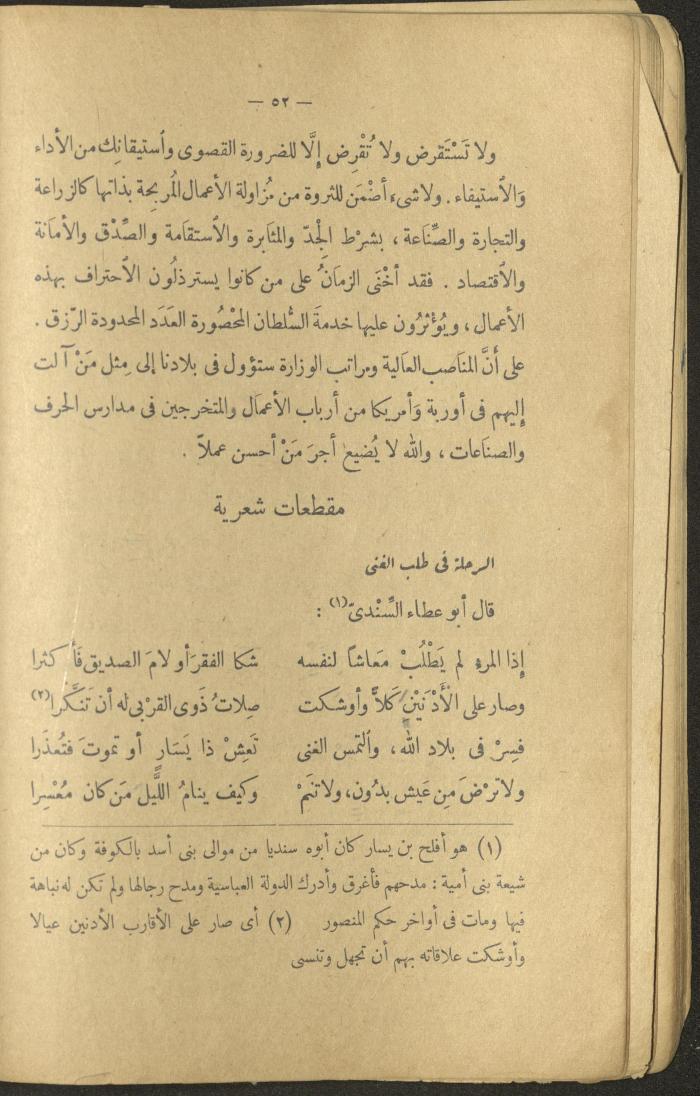 — ٥٢ —
ولا تَسْتَقرض ولا تُقْرِض إِلَّا للضرورة القصوى وٱستيقانك من الأداء
وَالٱستيفاء . ولا شىء أضْمَن للثروة من مُزاولة الأعمال المُربِحة بذاتها كالزراعة
والتجارة والصِّنَاعة ، بشرْط الجِدّ والمثابرة والٱستقامة والصِّدْق والأمانة
والٱقتصاد . فقد أخْنَى الزمانُ على من كانوا يسترذلُون الٱحتراف بهذه
الأعمال ، ويُؤْثرُون عليها خدمةَ السُّلطان المحْصُورة العَدَد المحدودة الرّزق .
على أنَّ المناصب العالية ومراتب الوزارة ستؤول فى بلادنا إلى مِثل مَنْ آلت
إليهم فى أوربة وَأمريكا من أرباب الأعمال والمتخرجين فى مدارس الحرف
والصناعات ، والله لا يُضيع أجرَ مَنْ أحسن عملاً .
مقطعات شعرية
الرحلة فى طلب الغنى
قال أبو عطاء السِّنْدىّ (١) :
إِذا المرء لم يَطْلُبْ مَعاشاً لنفسه شكا الفقرَ أو لامَ الصديق فَأكثرا
وصار على الْأَدْنَيْنِ كَلاًّ وأوشكت صِلاتُ ذَوى القرْبى له أن تَنَكَّرا (٢)
فسِرْ فى بلاد الله ، وٱلتمس الغنى تَعِشْ ذا يَسَارٍ أو تموتَ فتُعذَرا
ولا ترْضَ مِن عَيش بدُون ، ولا تنَمْ وكيف ينامُ اللَّيل مَن كان مُعْسِرا
(١) هو أفلح بن يسار كان أبوه سنديا من موالى بنى أسد بالكوفة وكان من
شيعة بنى أمية : مدحهم فأغرق وأدرك الدولة العباسية ومدح رجالها ولم تكن له نباهة
فيها ومات فى أواخر حكم المنصور (٢) أى صار على الأقارب الأدنين عيالا
وأوشكت علاقاته بهم أن تجهل وتنسى